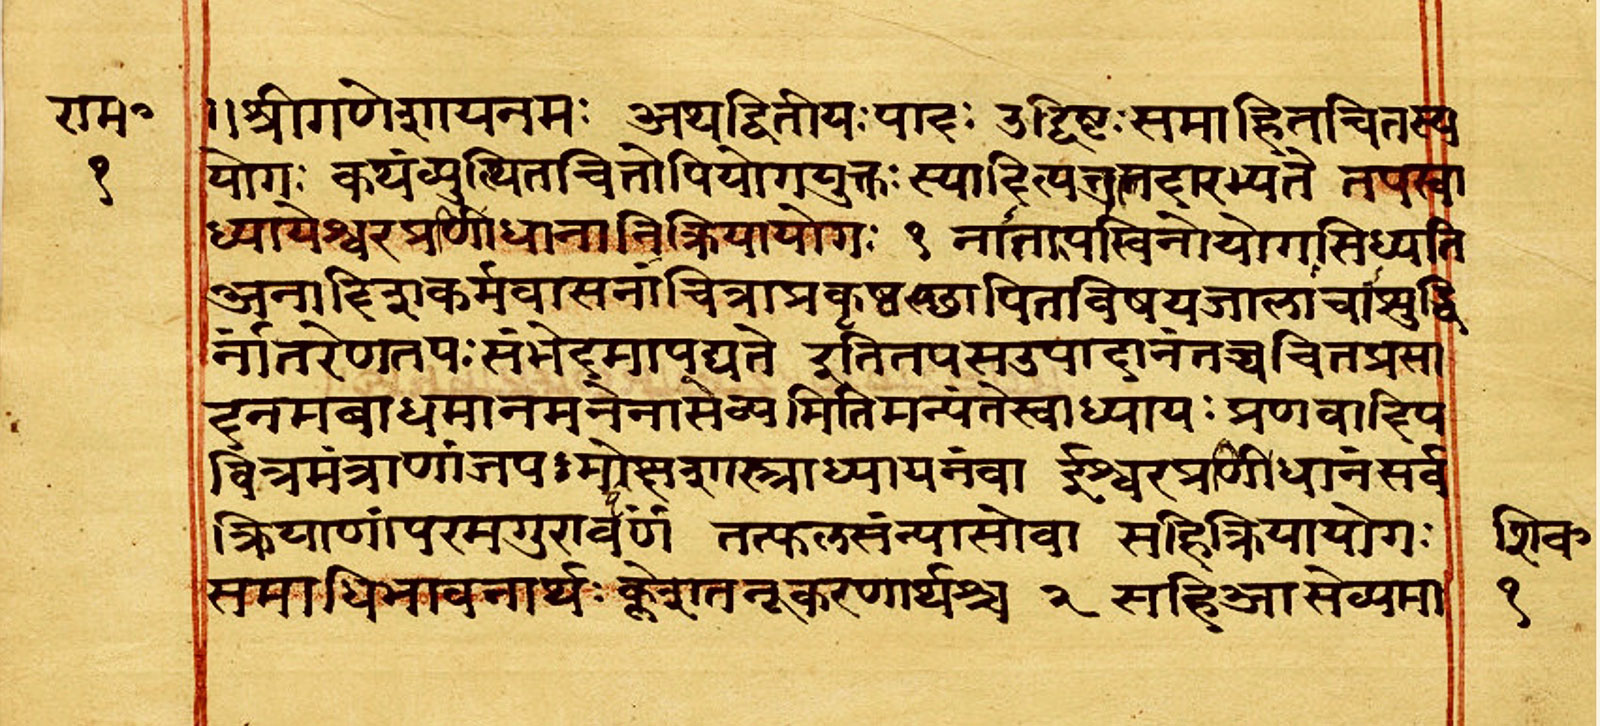 राम॰
१
॥श्रीगणेशायनमः अथद्वितीयःपादः उद्दिष्टःसमाहितचितस्य
योगः कथंव्युत्थितचित्तोपियोगयुक्तः स्यादित्येतत्तदारभ्यते तपस्वा
ध्यायेश्वरप्रणीधानानिक्रियायोगः १ नातापस्विनोयोगःसिध्यति
अनादिक्लेशकर्मवासनाचित्राप्रकृष्व विषयजालाचाशुद्धि
र्नांतरेणतपःसंभेदमापद्यते इतितपसउपादानंतच्चचितप्रसा
दनमबाधमानमनेनासेव्यमितिमन्यंतेस्वाध्यायः प्रणवादिप
वित्रमंत्राणांजपःमोक्षशास्त्राध्यायनंवा ईश्वरप्रणीधानंसर्व
क्रियाणांपरमगुरावर्पणं तत्फलसंन्यासोवा सहिक्रियायोगः
समाधिभावनार्थः क्लेशतनूकरणार्थश्च २ सहिआसेव्यमा
शिव॰
१